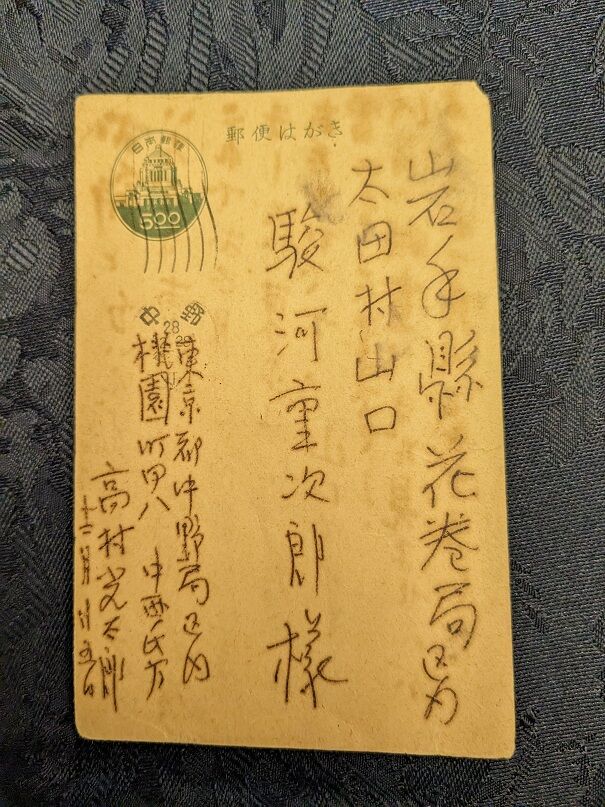 郵便はがき
日本郵便
5.00
岩手縣花巻局区内
太田村山口
駿河重次郎様
中野
28
東京都中野局区内
桃園町四八 中西氏方
高村光太郎
十二月廿五日